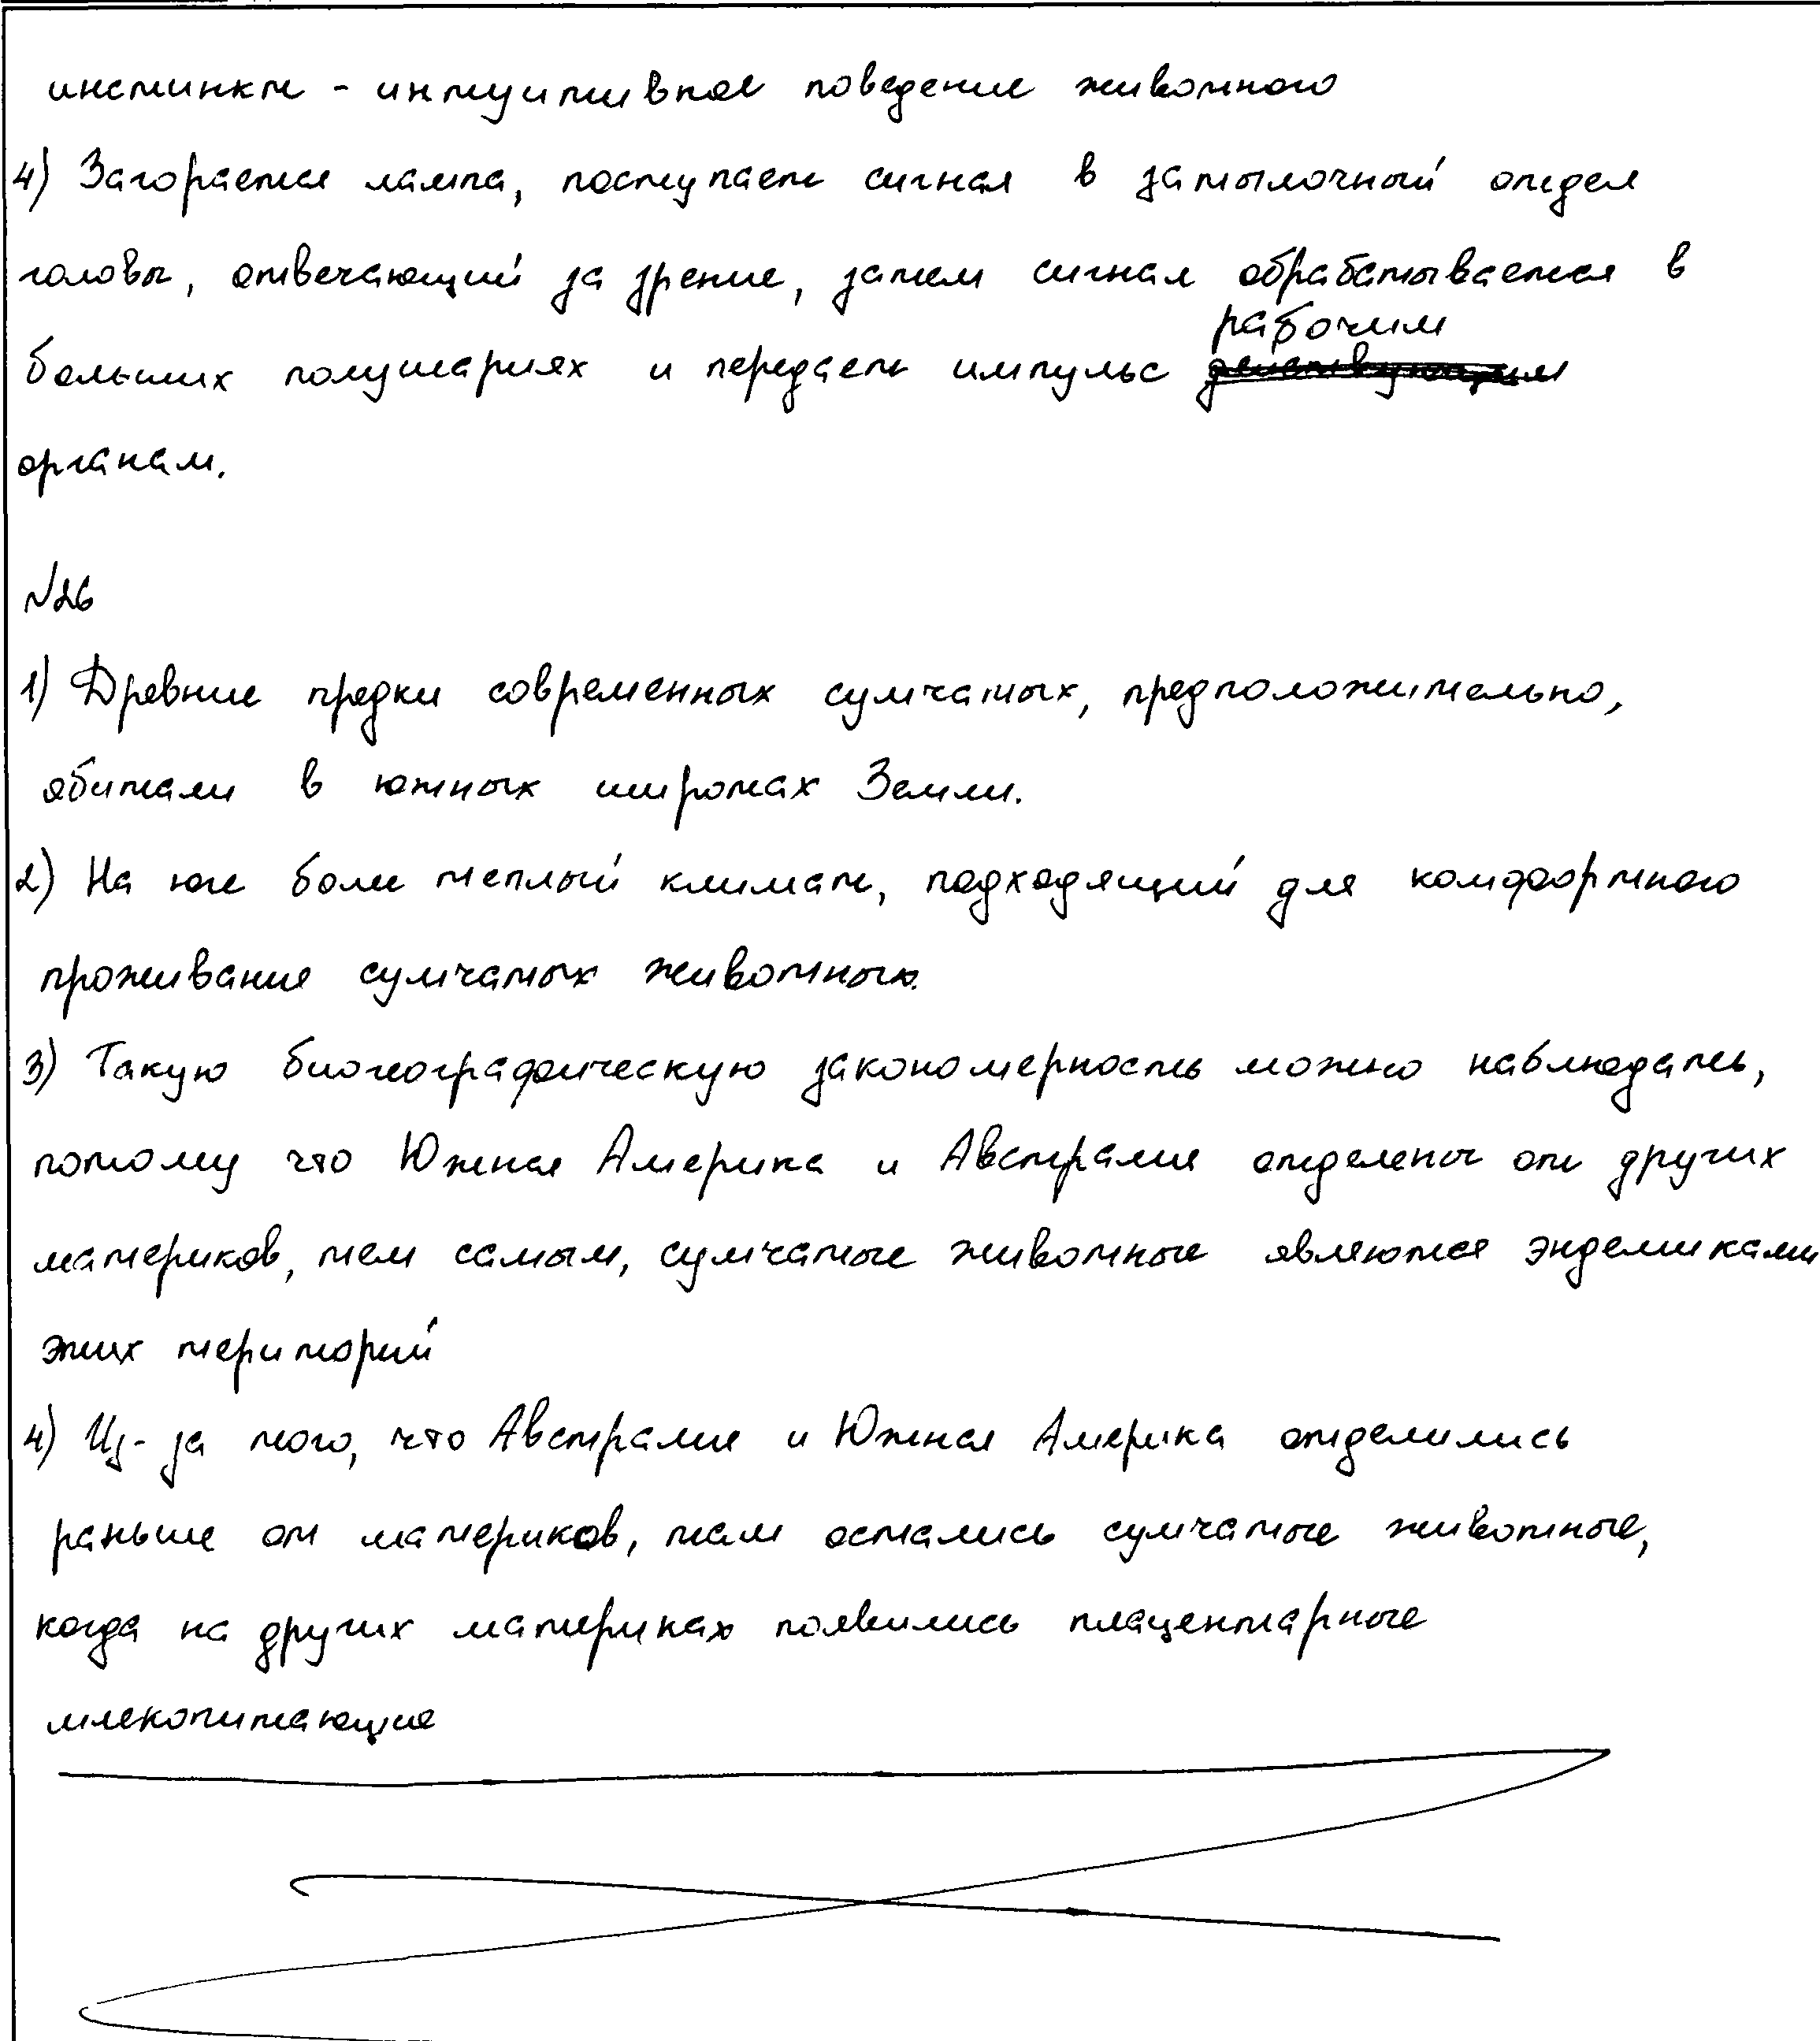 инстинкт - интуитивное поведение животного
4) Загорается лампа, поступает сигнал в затылочный отдел
головы, отвечающий за зрение, затем сигнал обрабатывается в
рабочим
больших полушариях и передаеть импульс действующим
органам.
№26
1) Древние предки современных сумчатых, предположительно,
обитали в южных широтах Земли.
2) На юге боли теплый климат, подходящий для комфортного
проживания сумчатых животных.
3) Такую биогеографическую закономерность можно наблюдать,
потому что Южная Америка и Австралия отделены от других
материков, тем самым, сумчатые животные являются эндемиками
этих територий
4) Из-за того, что Австралия и Южная Америка отделились
раньше от материков, там остались сумчатые животные,
когда на других материках появились плацентарные
млекопитающие